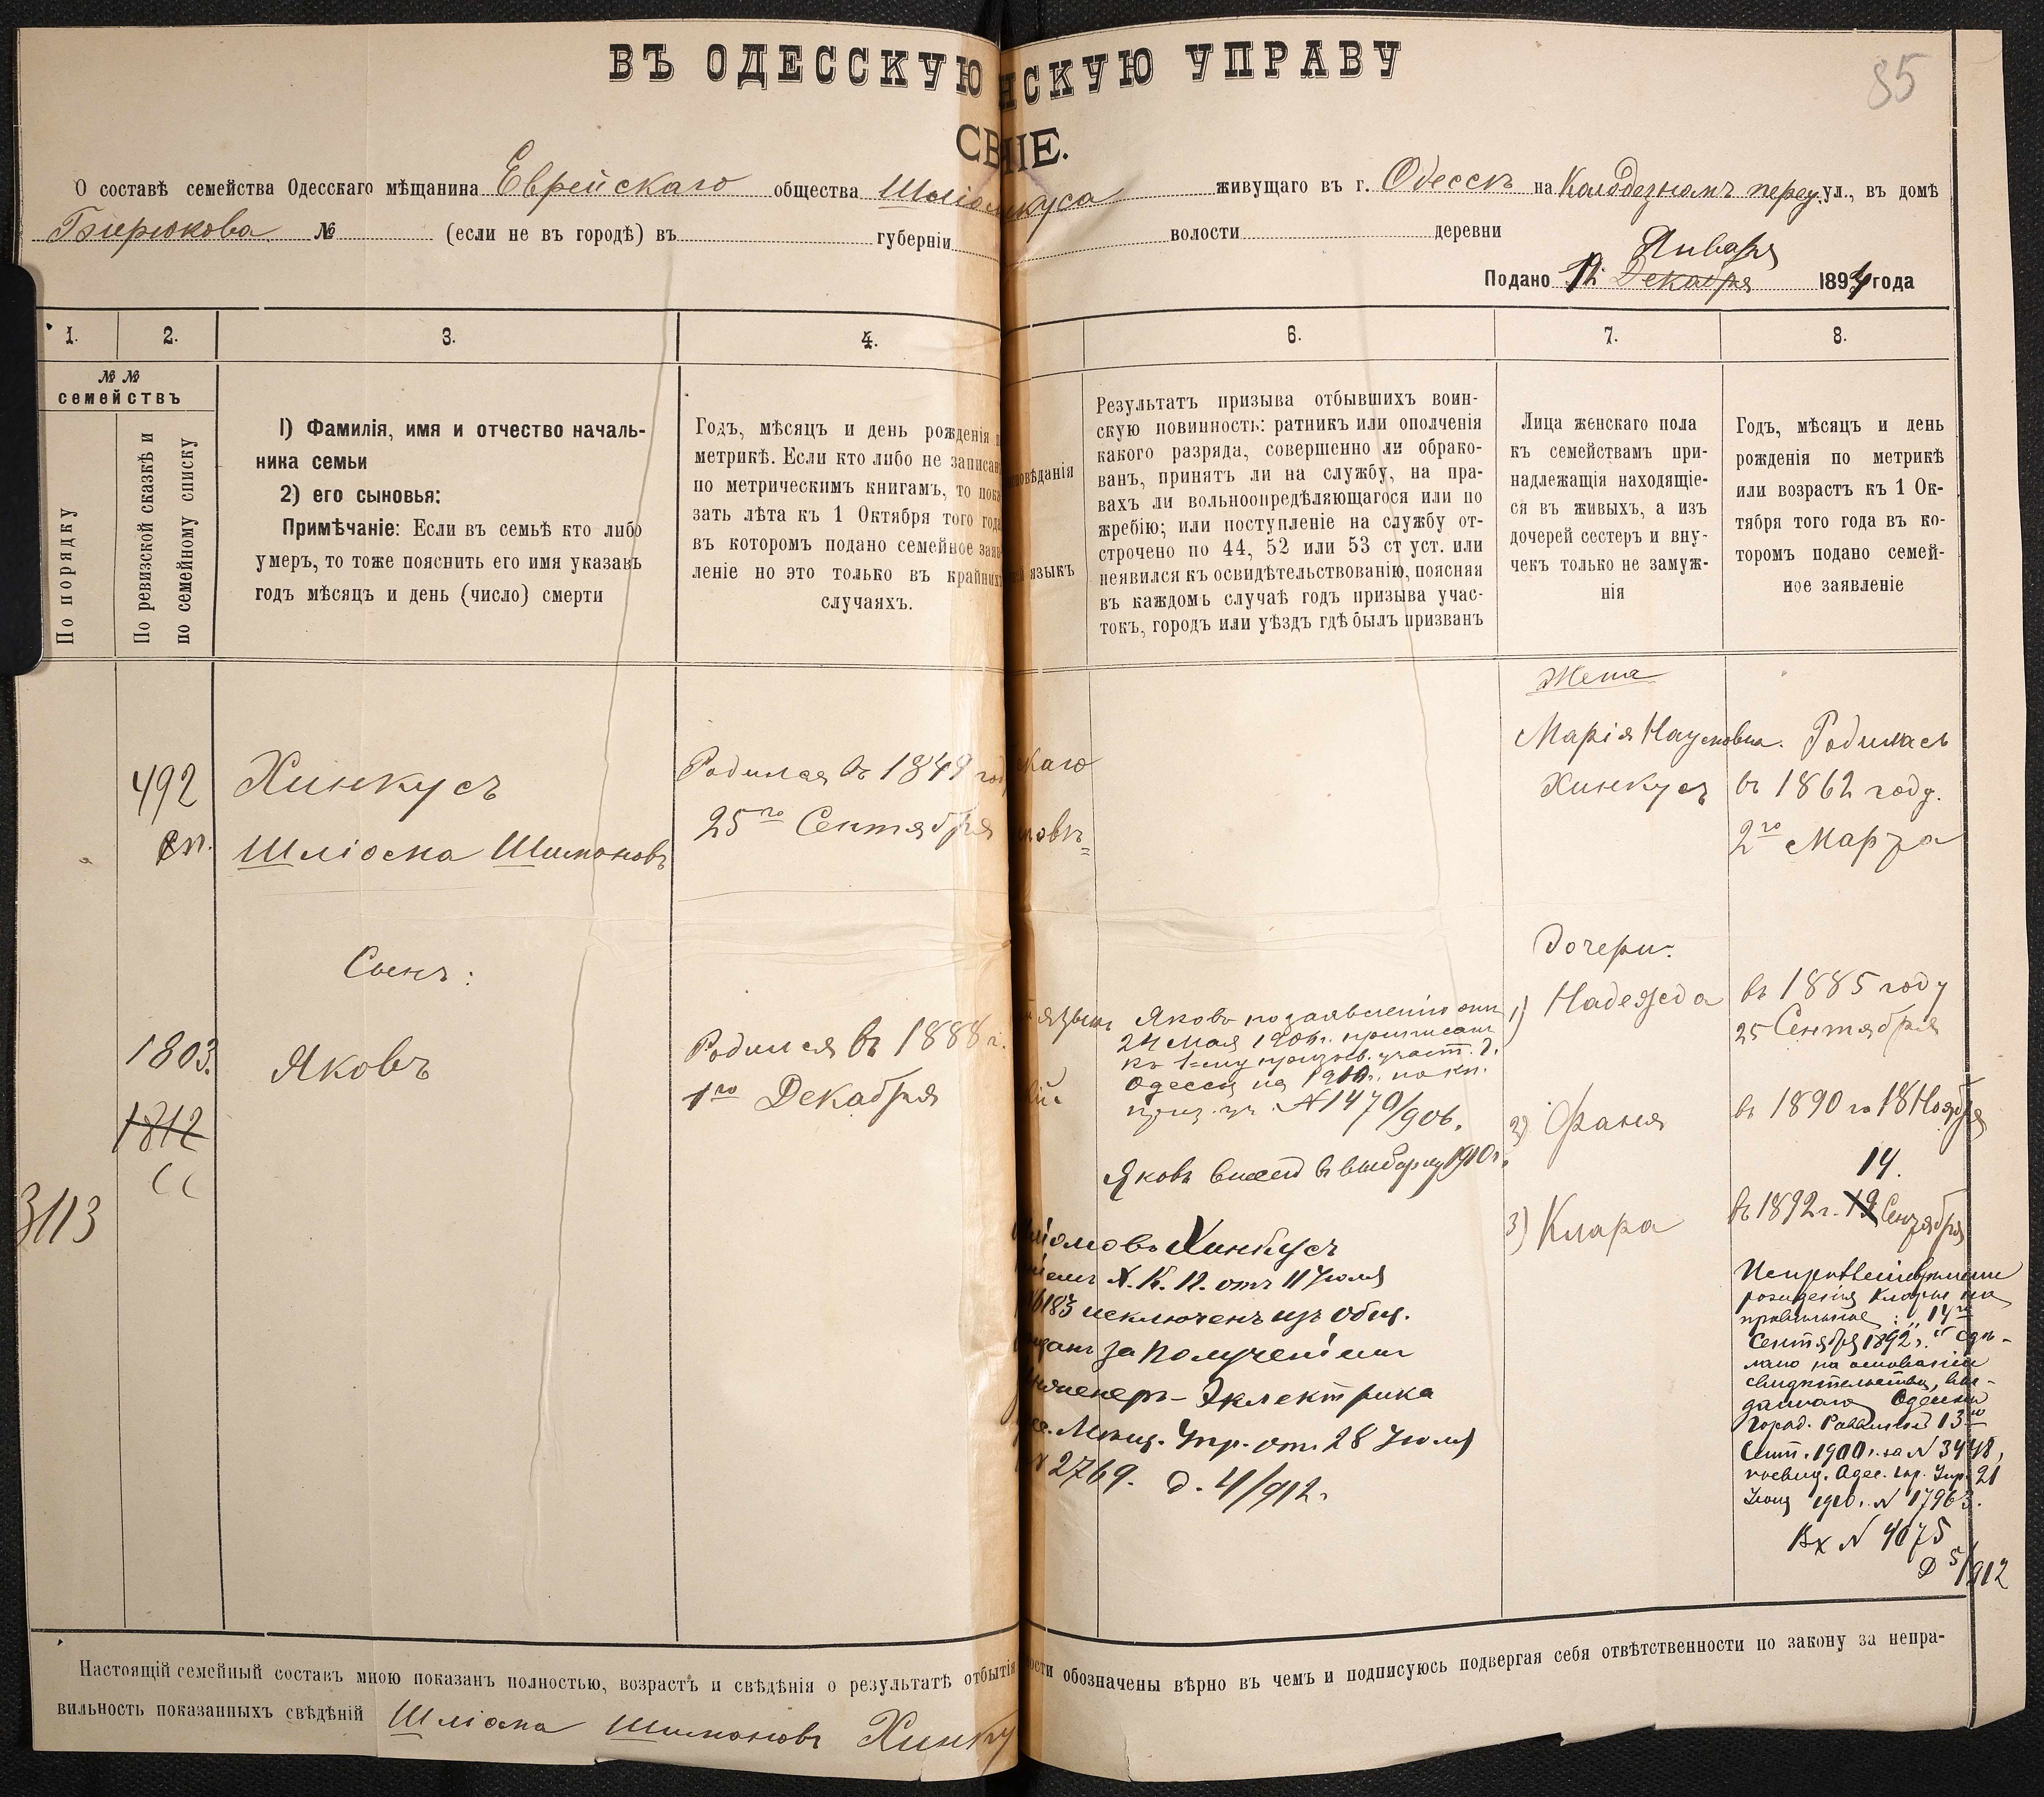 ВЪ ОДЕССКУЮ НСКУЮ УПРАВУ
85
СВ НІЕ.
О составѣ семейства Одесскаго мѣщанина Еврейскаго общества живущаго въ г. Одессѣ на Колодезномъ переу. ул., въ домѣ
Бирюкова № (если не въ городѣ) въ губерніи волости деревни
Января
Подано 12 Декабря 1894 года
1. 2. 3. 4. 6. 7. 8.
№ №
семействъ
По порядку
По ревизской сказкѣ и
по семейному списку
1) Фамилія, имя и отчество началь-
ника семьи
2) его сыновья:
Примѣчаніе: Если въ семьѣ кто либо
умеръ, то тоже пояснить его имя указавъ
годъ мѣсяцъ и день (число) смерти
Годъ, мѣсяцъ и день рожденія п
метрикѣ. Если кто либо не записан
по метрическимъ книгамъ, то пока
зать лѣта къ 1 Октября того года
въ которомъ подано семейное заяв
леніе но это только въ крайних
случаяхъ.
повѣданія
й языкъ
Результатъ призыва отбывшихъ воин-
скую повинность: ратникъ или ополченія
какого разряда, совершенно ли обрако-
ванъ, принятъ ли на службу, на пра-
вахъ ли вольноопредѣляющагося или по
жребію; или поступленіе на службу от-
строчено по 44, 52 или 53 ст уст. или
неявился къ освидѣтельствованію, поясняя
въ каждомъ случаѣ годъ призыва учас-
токъ, городъ или уѣздъ гдѣ былъ призванъ
Лица женскаго пола
къ семействамъ при-
надлежащія находящіе-
ся въ живыхъ, а изъ
дочерей сестеръ и вну-
чекъ только не замуж-
нія
Годъ, мѣсяцъ и день
рожденія по метрикѣ
или возрастъ къ 1 Ок-
тября того года въ ко-
торомъ подано семей-
ное заявленіе
492
сп.
Хинкусъ
Шліома Шимоновъ
Родился въ 1849 год
25го Сентября
скаго
Жена
Марія Наумовна.
Хинкусъ
Родилась
въ 1862 году.
2го Марта
Сынъ:
1803.
1812
3113
Яковъ
Родился въ 1888 г.
1го Декабря
языкъ
Яковъ по заявленію отъ
24 Мая 1906г. приписанъ
къ 1-му призыв. участ. г.
Одессы на 1910г. по кн.
приз. уч. №1470/906.
Яковъ внесенъ въ выборку 1910г.
Дочери:
1) Надежда
въ 1885 году
25 Сентября
2) Фаня
въ 1890 го 18 Ноября
14.
3) Клара
въ 1892 г. 19 Сентября
ліомовъ Хинкусъ
іемъ Х. К. П. отъ 11 Іюля
6183 исключенъ изъ общ.
за полученіемъ
Инженеръ-Электрика
Мѣщ. Упр. отъ 28 Іюля
№ 2769. д. 4/912.
рожденія Клары на
правильное: „14го
Сентября 1892г.“ сдѣ-
лано на основаніи
свидѣтельства, вы-
даннаго Одесскимъ
Город. Раввиномъ 13го
Сент. 1900г. за № 3448,
Одес. гор. Упр. 21
1910г. № 17963.
Вх № 4075
Д 5/912
Настоящій семейный составъ мною показанъ полностью, возрастъ и свѣдѣнія о результатѣ отбытія ности обозначены вѣрно въ чемъ и подписуюсь подвергая себя отвѣтственности по закону за непра-
вильность показанныхъ свѣдѣній Шліома Шимоновъ Хинку